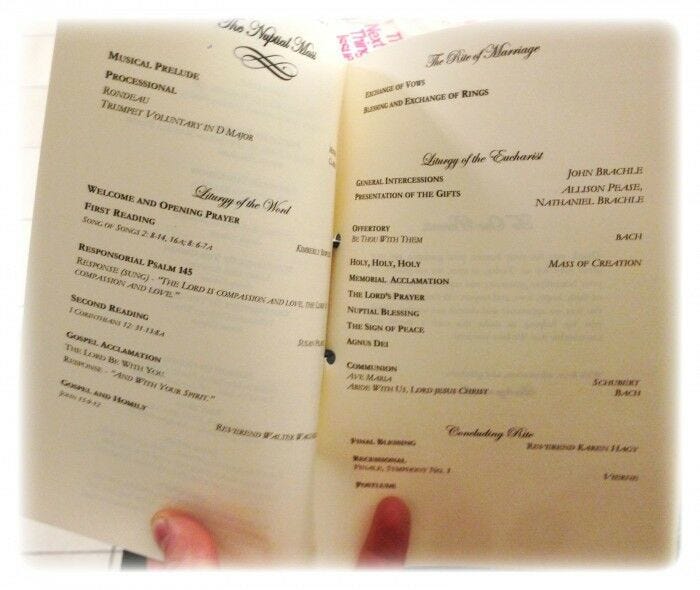 The Nuptial Mass
Musical Prelude
Processional
Rondeau
Trumpet Voluntary in D Major
Liturgy of the Word
Welcome and Opening Prayer
First Reading
Song of Songs 2: 8-14, 16A; 8: 6-7A
Kimberly
Responsorial Psalm 145
Response (sung) - "The Lord is compassion and love, the Lord
compassion and love."
Second Reading
1 Corinthians 12: 31-13:8A
Susan
Gospel Acclamation
The Lord Be With You
Response - "And with Your Spirit."
Gospel and Homily
John 15:9-12
Reverend Walter
Next
Thing
The Rite of Marriage
Exchange of Vows
Blessing and Exchange of Rings
Liturgy of the Eucharist
General Intercessions John Brachle
Presentation of the Gifts Allison Pease,
Nathaniel Brachle
Offertory
Be Thou With Them Bach
Holy, Holy, Holy Mass of Creation
Memorial Acclamation
The Lord's Prayer
Nuptial Blessing
The Sign of Peace
Agnus Dei
Communion
Ave Maria Schubert
Abide With Us, Lord Jesus Christ Bach
Concluding Rite
Final Blessing Reverend Karen Hagy
Recessional
Finale, Symphony No. 1 Vierne
Postlude